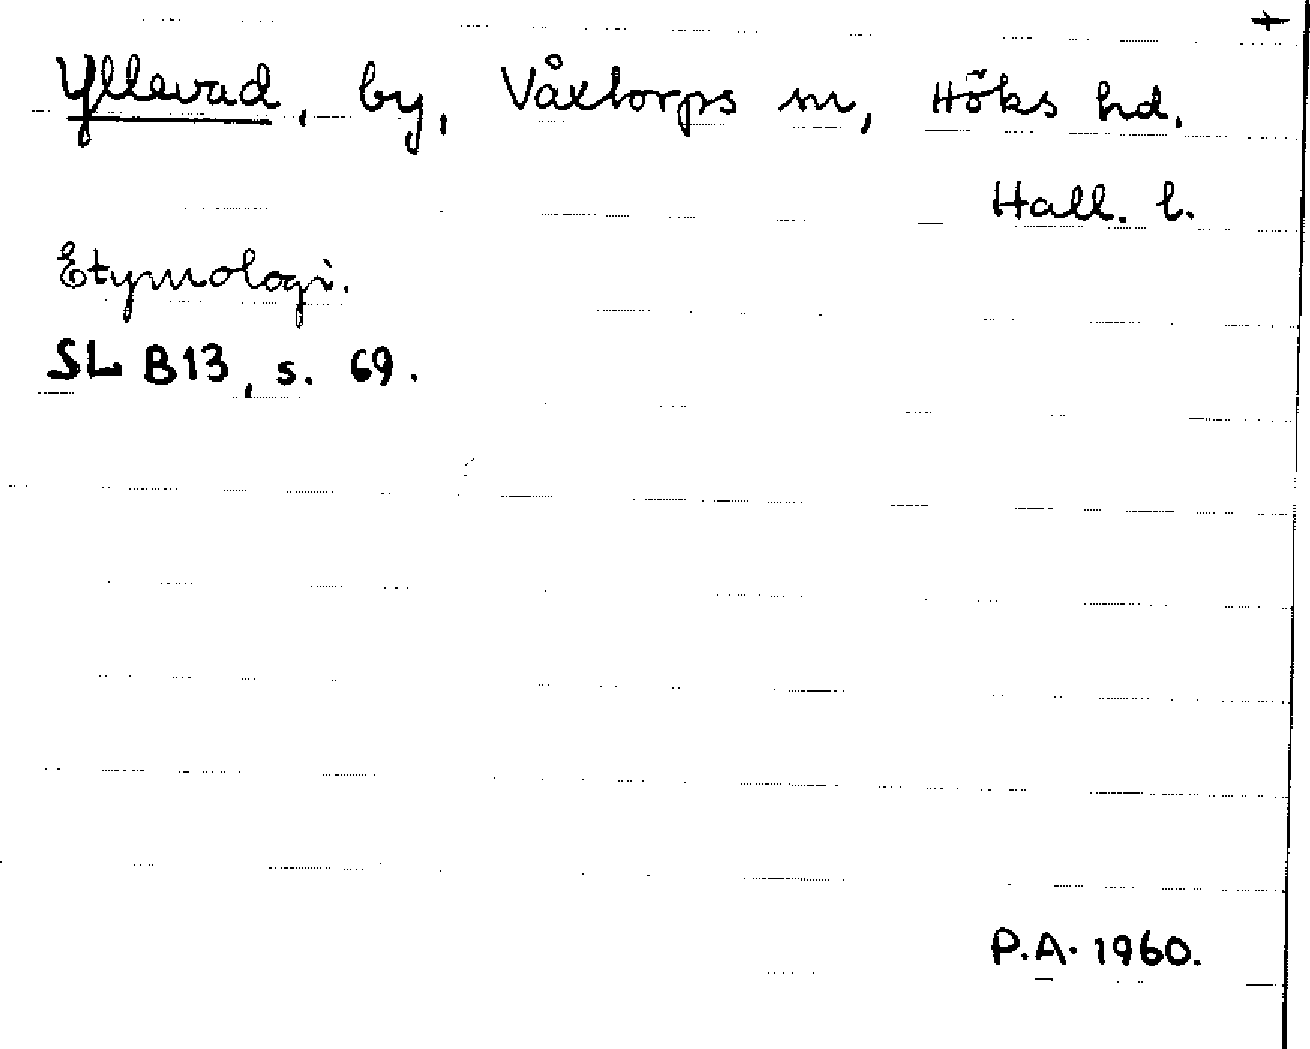 +
Yllevad, by, Våxtorps sn, Höks hd.
Hall. l.
Etymologi.
SL B13, s. 69.
P.A. 1960.